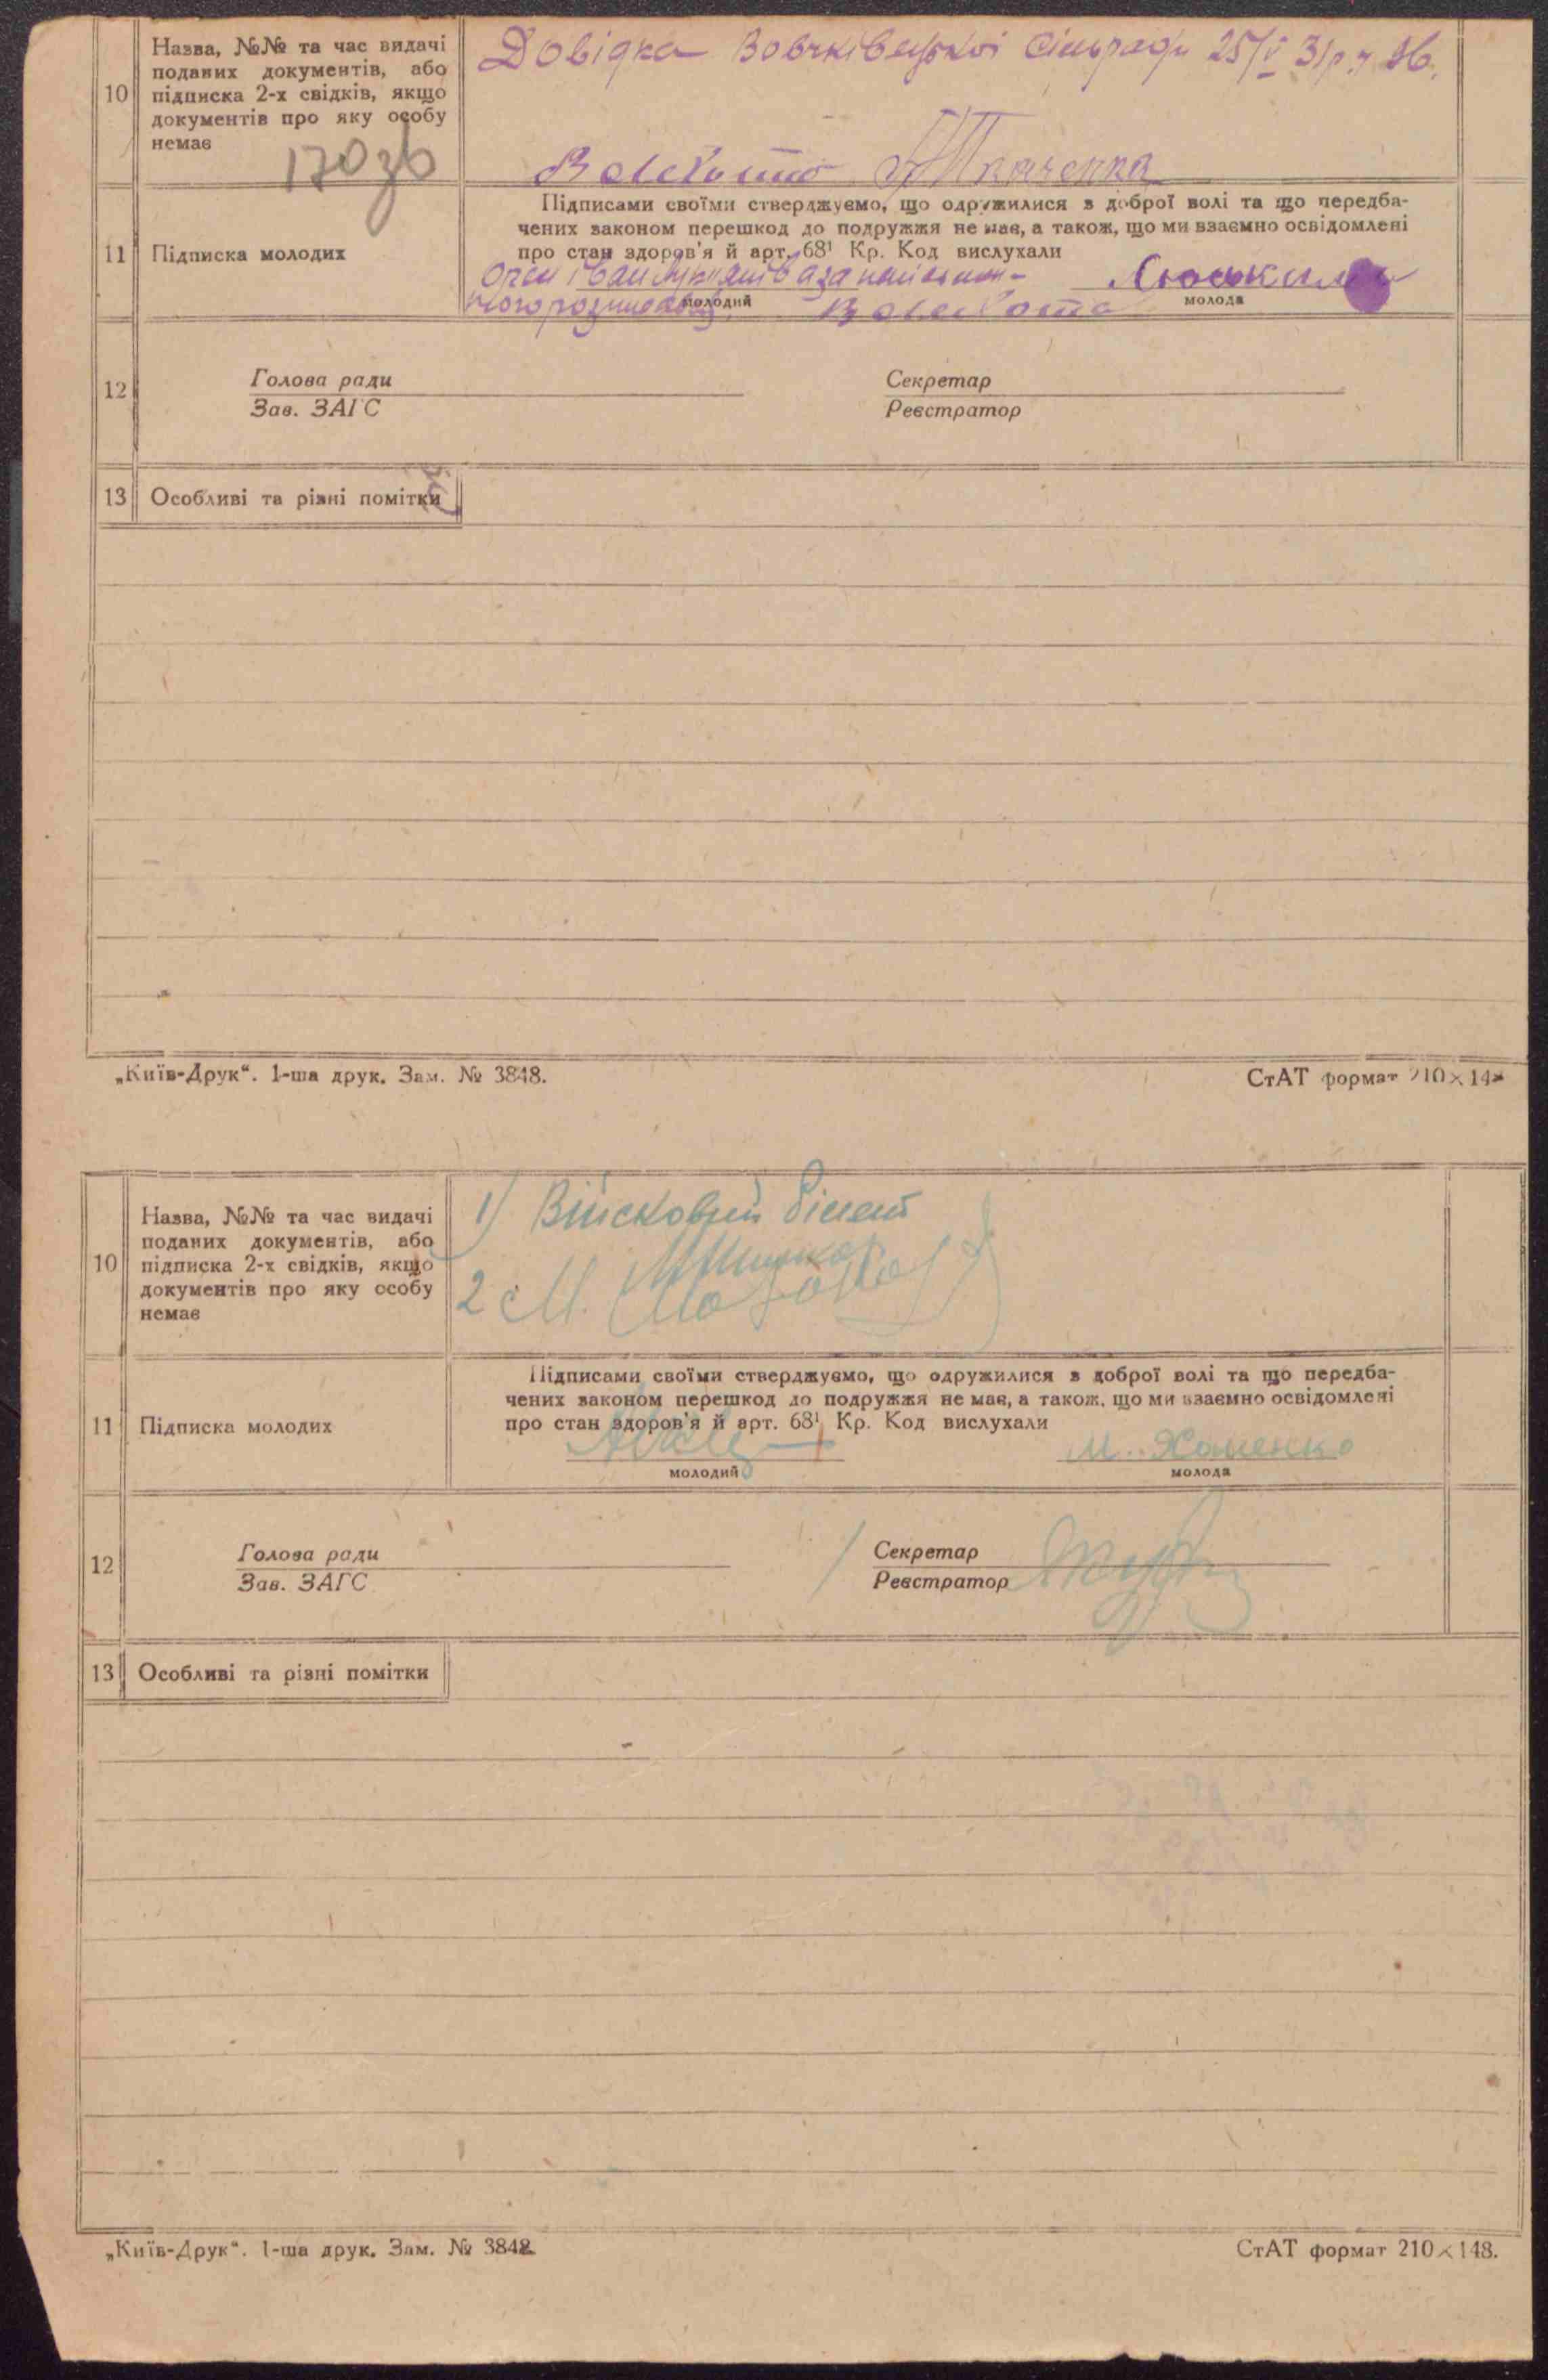 10
Назва, №№ та час видачі
поданих документів, або
підписка 2-х свідків, якщо
документів про яку особу
немає
Довідка Вовчківецької Сільради 25/V 31р
Ткаченка
11
Підписка молодих
Підписами своїми стверджуємо, що одружилися з доброї волі та що передба-
чених законом перешкод до подружжя не має, а також, що ми взаємно освідомлені
про стан здоров'я й арт. 68¹ Кр. Код вислухали
молодий
молода
12
Голова ради
Зав. ЗАГС
Секретар
Реєстратор
13
Особливі та різні помітки
„Київ-Друк“. 1-ша друк. Зам. № 3848.
СтАТ формат 210×148
10
Назва, №№ та час видачі
поданих документів, або
підписка 2-х свідків, якщо
документів про яку особу
немає
1) Військовий білет
2
11
Підписка молодих
Підписами своїми стверджуємо, що одружилися з доброї волі та що передба-
чених законом перешкод до подружжя не має, а також, що ми взаємно освідомлені
про стан здоров'я й арт. 68¹ Кр. Код вислухали
М. Хоменко
молодий
молода
12
Голова ради
Зав. ЗАГС
Секретар
Реєстратор
13
Особливі та різні помітки
„Київ-Друк“. 1-ша друк. Зам. № 3848
СтАТ формат 210×148.